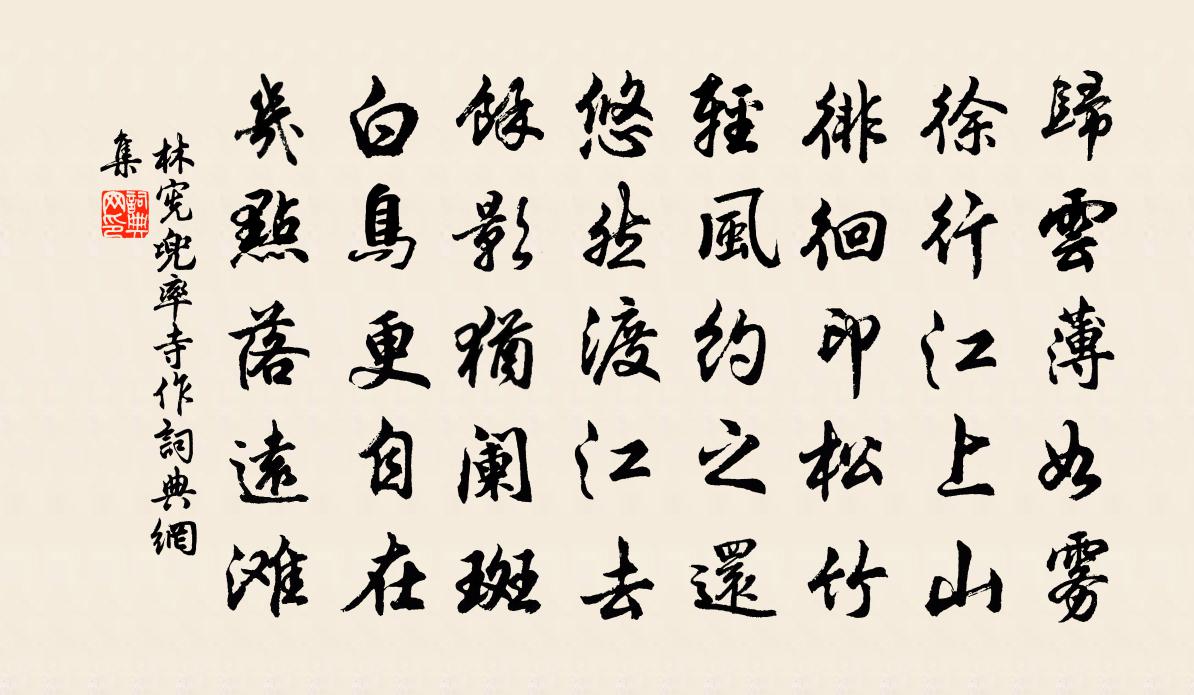 歸雲薄如霧
徐行江上山
徘徊印松竹
輕風約之還
悠然渡江去
餘影猶闌斑
白鳥更自在
幾點落遠滩
林宪兜率寺作詞典網
集
詞典網印